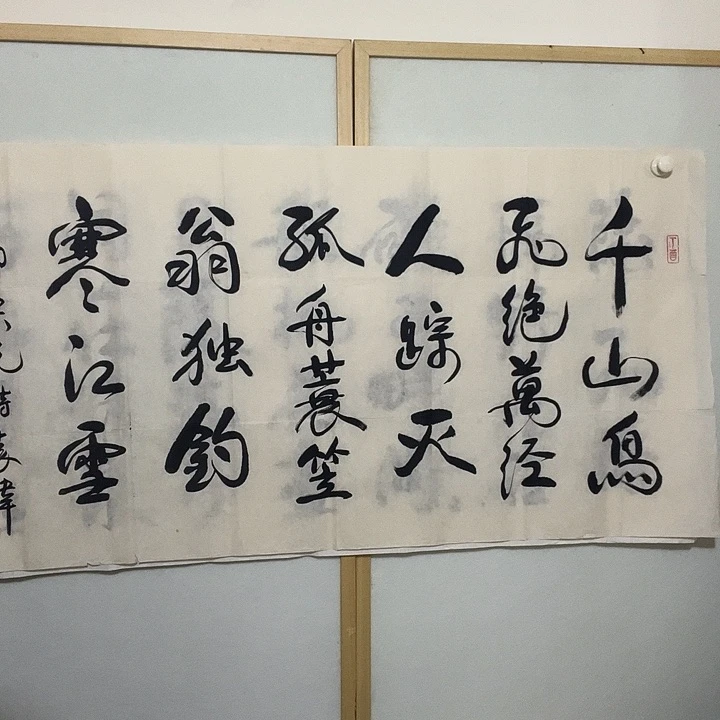 千山鳥
飛绝萬径
人踪灭
孤舟蓑笠
翁独釣
寒江雪